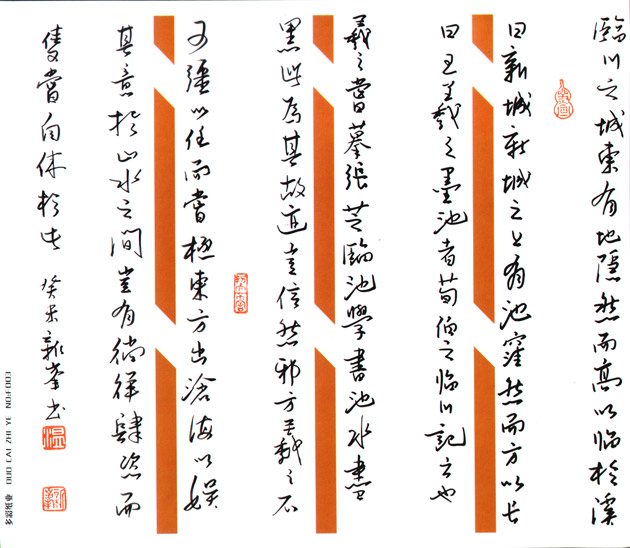 臨川之城東有地隱然而高以臨於溪
曰新城新城之上有池窪然而方以長
曰王羲之墨池者荀伯之臨川記云也
羲之嘗摹張芝臨池學書池水盡
黑此為其故迹豈信然邪方羲之不
可彊以仕而嘗極東方出滄海以娛
其意於山水之間豈有徜徉肆恣而
隻嘗自休於此 癸未新峯书